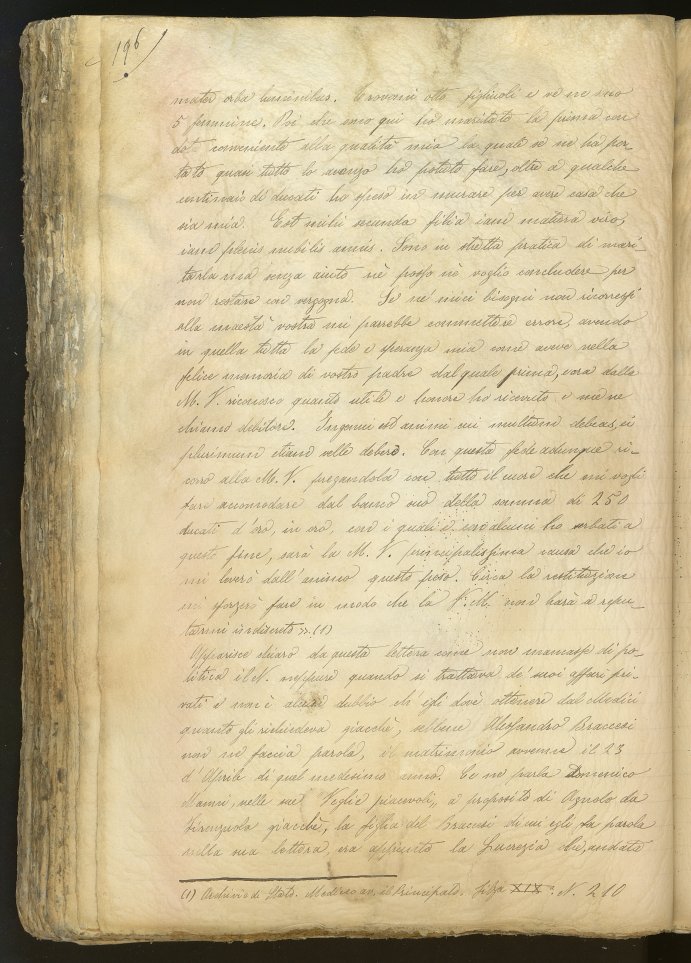 196
mater orba luminibus. Trovomi otto figliuoli e ve ne sono
5 femmine. Poi che sono qui ho maritato la prima con
dot conveniente alla qualità mia la quale se ne ha por-
tato quasi tutto lo avenzo ho potuto fare, oltre a qualche
centinaio di ducati ho speso in murare per avere casa che
sia mia. Est mihi secunda filia iam matura viro,
iam plenis nubilis annis. Sono in stretta pratica di mari-
tarla ma senza aiuto nè posso nè voglio concludere per
non restare con vergogna. Se ne' miei bisogni non ricorressi
alla maestà vostra mi parrebbe commettere errore, avendo
in quella tutta la fede e speranza mia come avevo nella
felice memoria di vostro padre dal quale prima, e ora dalla
M. V. riconosco quanto utile e honore ho ricevuto e me ne
chiamo debitore. Ingenui est animi cui multum debeas, ei
plurimum etiam velle debere. Con questa fede adunque ri-
corro alla M. V. pregandola con tutto il cuore che mi vogli
fare accomodare dal banco suo della somma di 250
ducati d'oro, in oro, con i quali e con alcuni ho serbati a
questo fine, sarà la M. V. principalissima causa che io
mi leverò dall'animo questo peso. Circa la restituzione
mi sforzerò fare in modo che la V. M. non harà a repu-
tarmi indiscreto ». (1)
Apparisce chiaro da questa lettera come non mancasse di po-
litica il N. neppure quando si trattava de' suoi affari pri-
vati e non è alcun dubbio ch'egli dovè ottenere dal Medici
quanto gli richiedeva giacchè, sebbene Alessandro Braccesi
non ne faccia parola, il matrimonio avvenne il 23
d'Aprile di quel medesimo anno. Ce ne parla Domenico
Manni, nelle sue Veglie piacevoli, a proposito di Agnolo da
Firenzuola giacchè, la figlia del Braccesi di cui egli fa parola
nella sua lettera, era appunto la Lucrezia che, andata
(1) Archivio di Stato. Mediceo av. il Principato. filza XIX: N. 210